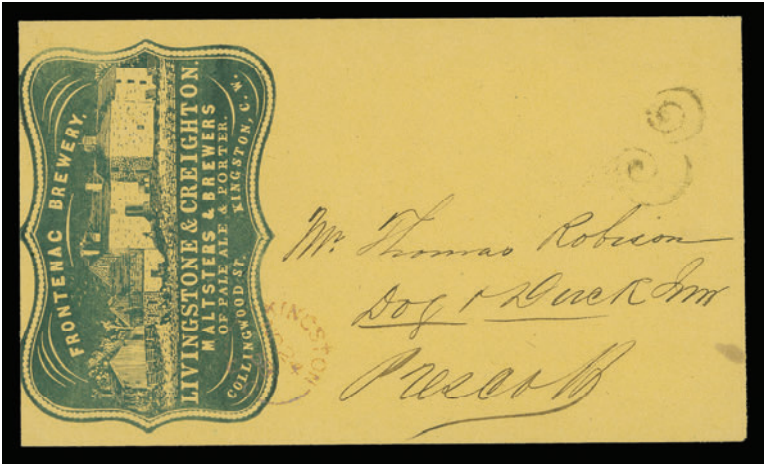 FRONTENAC BREWERY.
LIVINGSTONE & CREIGHTON.
MALTSTERS & BREWERS
OF PALE ALE & PORTER.
COLLINGWOOD ST. KINGSTON, C. W.
KINGSTON
Mr. Thomas Robison
Dog & Duck Inn
Prescott